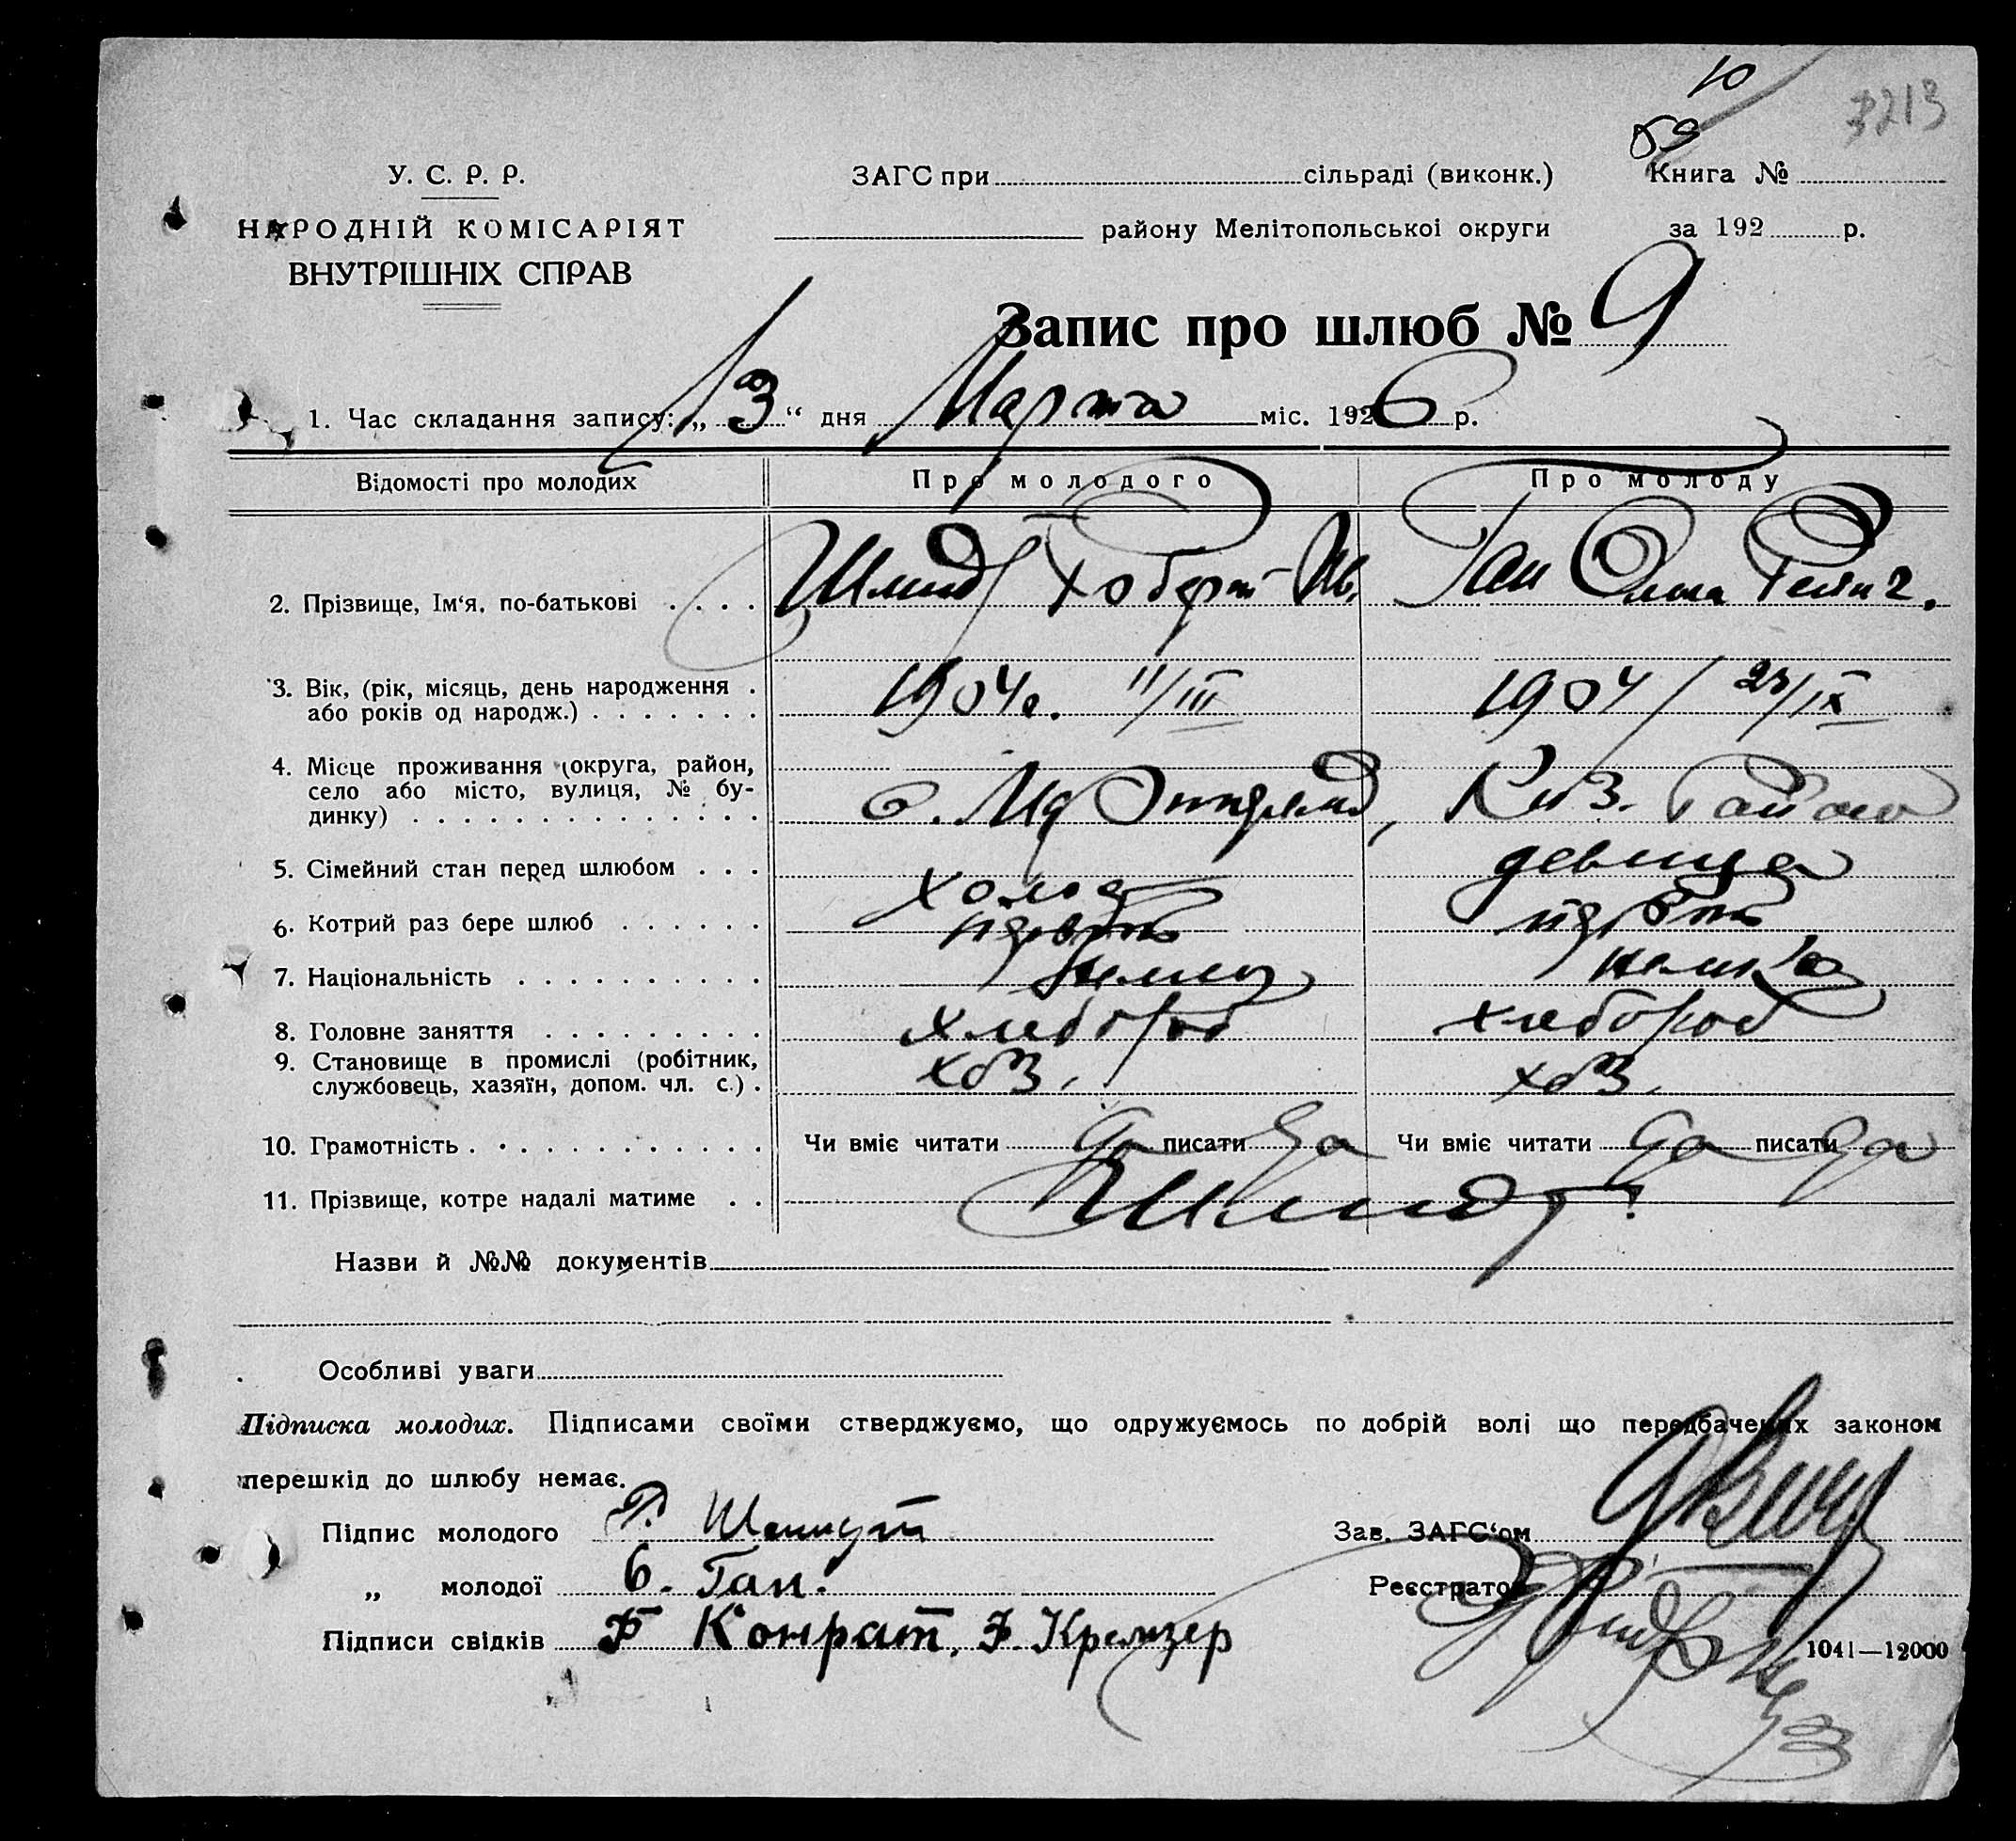 10
59
3213
У. С. Р. Р.
НАРОДНІЙ КОМІСАРІЯТ
ВНУТРІШНІХ СПРАВ
ЗАГС при сільраді (виконк.)
району Мелітопольської округи
Книга №
за 192 р.
Запис про шлюб № 9
1. Час складання запису: „ 3 “ дня Марта міс. 1926 р.
Відомості про молодих Про молодого Про молоду
2. Прізвище, Ім‘я, по-батькові Шмидт Роберт Ив. Ган Ольга
3. Вік, (рік, місяць, день народження 1904г. 11/III 1904 / 23/IX
або років од народж.)
4. Місце проживання (округа, район,
село або місто, вулиця, № бу-
динку) с. , Киз. Района
5. Сімейний стан перед шлюбом холост девица
6. Котрий раз бере шлюб первый первый
7. Національність немец немка
8. Головне заняття хлебороб хлебороб
9. Становище в промислі (робітник, хоз. хоз.
службовець, хазяїн, допом. чл. с.)
10. Грамотність Чи вміє читати да писати да Чи вміє читати да писати да
11. Прізвище, котре надалі матиме Шмидт
Назви й №№ документів
Особливі уваги
Підписка молодих. Підписами своїми стверджуємо, що одружуємось по добрій волі що передбачених законом
перешкід до шлюбу немає.
Підпис молодого Р. Шмидт
Зав. ЗАГС‘ом
„ молодої О. Ган.
Реєстратор
Підписи свідків Ф Конрат, Ф. Кремзер
1041—12000